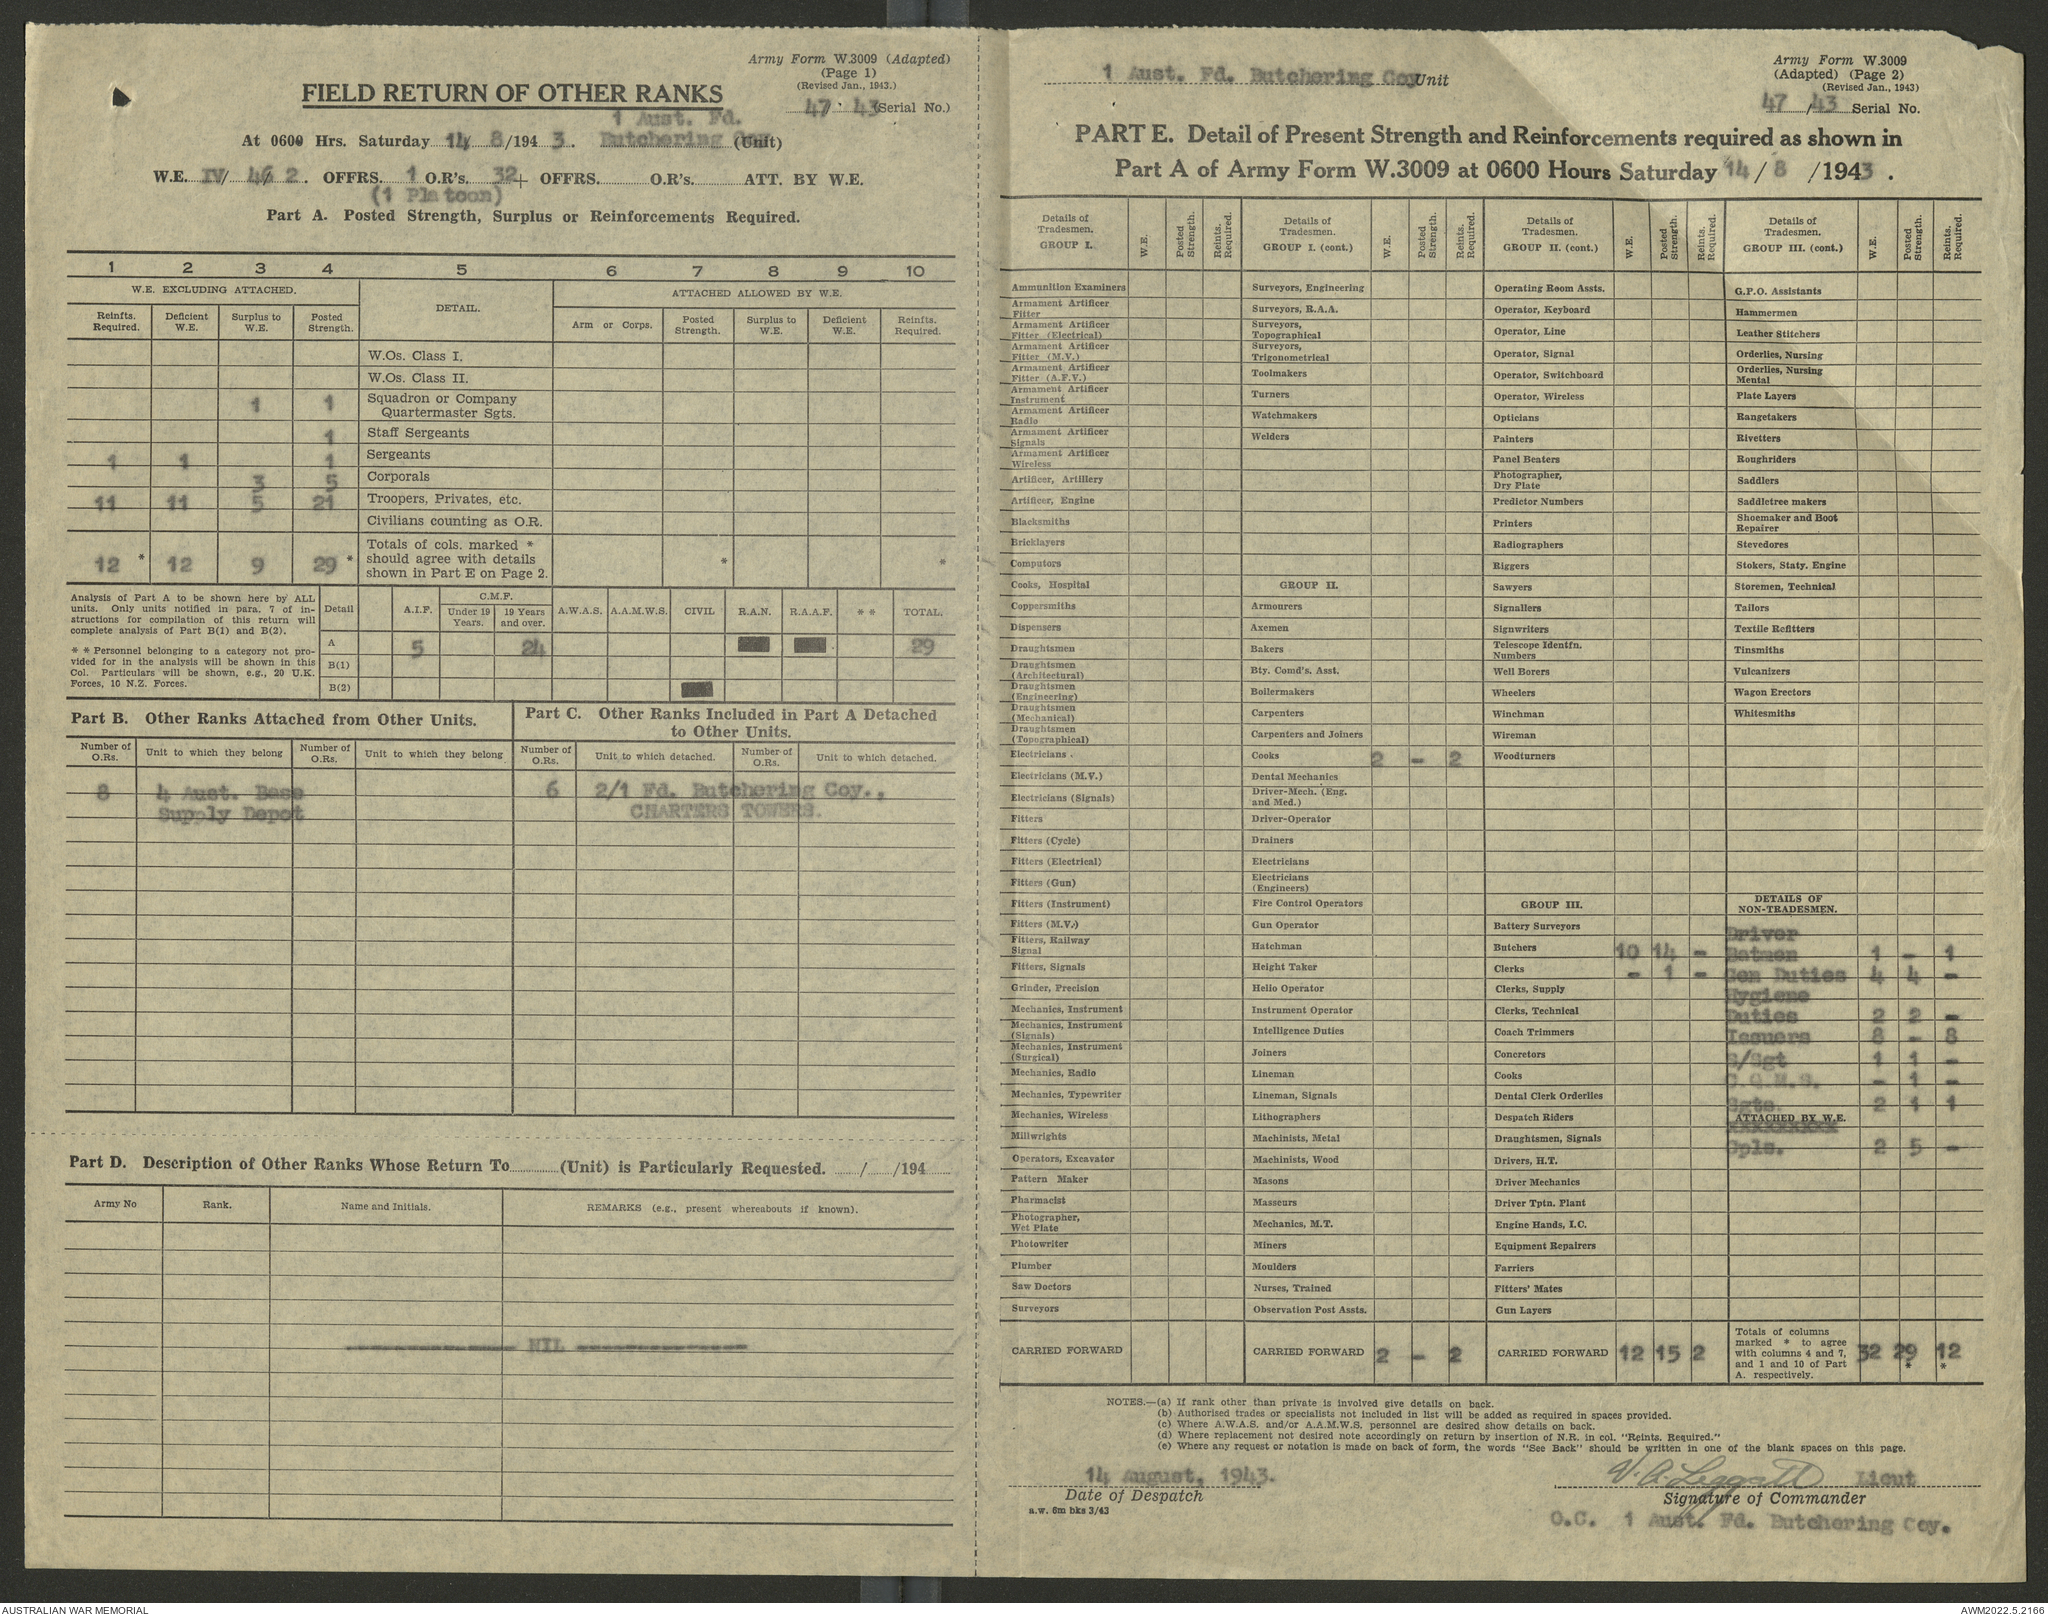 Army Form W.3009 (Adapted)
(Page 1)
(Revised Jan., 1943.)
FIELD RETURN OF OTHER RANKS
47 43 (Serial No.)
1 Aust. Fd.
At 0600 Hrs. Saturday 14/ 8/194 3. Butchering Coy (Unit)
W.E. IV/ 46/ 2. OFFRS. 1 O.R's. 32+ OFFRS. O.R's. ATT. BY W.E.
(1 Platoon)
Part A. Posted Strength, Surplus or Reinforcements Required.
1 2 3 4 5 6 7 8 9 10
W.E. EXCLUDING ATTACHED. DETAIL. ATTACHED ALLOWED BY W.E.
Reinfts. Required. Deficient W.E. Surplus to W.E. Posted Strength. Arm or Corps. Posted Strength. Surplus to W.E. Deficient W.E. Reinfts. Required.
W.Os. Class I.
W.Os. Class II.
1 1 Squadron or Company
Quartermaster Sgts.
1 Staff Sergeants
1 1 1 Sergeants
3 5 Corporals
11 11 5 21 Troopers, Privates, etc.
Civilians counting as O.R.
12 * 12 9 29 * Totals of cols. marked *
should agree with details * *
shown in Part E on Page 2.
Analysis of Part A to be shown here by ALL
units. Only units notified in para. 7 of in-
structions for compilation of this return will
complete analysis of Part B(1) and B(2).
* * Personnel belonging to a category not pro-
vided for in the analysis will be shown in this
Col. Particulars will be shown, e.g., 20 U.K.
Forces, 10 N.Z. Forces.
Detail A.I.F. C.M.F. Under 19 Years. 19 Years and over. A.W.A.S. A.A.M.W.S. CIVIL R.A.N. R.A.A.F. * * TOTAL.
A 5 24 29
B(1)
B(2)
Part B. Other Ranks Attached from Other Units.
Number of O.Rs. Unit to which they belong Number of O.Rs. Unit to which they belong
8 4 Aust. Base
Supply Depot
Part C. Other Ranks Included in Part A Detached
to Other Units.
Number of O.Rs. Unit to which detached. Number of O.Rs. Unit to which detached.
6 2/1 Fd. Butchering Coy.,
CHARTERS TOWERS.
Part D. Description of Other Ranks Whose Return To (Unit) is Particularly Requested. / /194
Army No Rank. Name and Initials. REMARKS (e.g., present whereabouts if known).
NIL
1 Aust. Fd. Butchering Coy Unit
Army Form W.3009
(Adapted) (Page 2)
(Revised Jan., 1943)
47 /43 Serial No.
PART E. Detail of Present Strength and Reinforcements required as shown in
Part A of Army Form W.3009 at 0600 Hours Saturday 14 / 8 /1943 .
Details of Tradesmen. GROUP I. W.E. Posted Strength. Reints. Required.
Ammunition Examiners
Armament Artificer Fitter
Armament Artificer Fitter (Electrical)
Armament Artificer Fitter (M.V.)
Armament Artificer Fitter (A.F.V.)
Armament Artificer Instrument
Armament Artificer Radio
Armament Artificer Signals
Armament Artificer Wireless
Artificer, Artillery
Artificer, Engine
Blacksmiths
Bricklayers
Computors
Cooks, Hospital
Coppersmiths
Dispensers
Draughtsmen
Draughtsmen (Architectural)
Draughtsmen (Engineering)
Draughtsmen (Mechanical)
Draughtsmen (Topographical)
Electricians .
Electricians (M.V.)
Electricians (Signals)
Fitters
Fitters (Cycle)
Fitters (Electrical)
Fitters (Gun)
Fitters (Instrument)
Fitters (M.V.)
Fitters, Railway Signal
Fitters, Signals
Grinder, Precision
Mechanics, Instrument
Mechanics, Instrument (Signals)
Mechanics, Instrument (Surgical)
Mechanics, Radio
Mechanics, Typewriter
Mechanics, Wireless
Millwrights
Operators, Excavator
Pattern Maker
Pharmacist
Photographer, Wet Plate
Photowriter
Plumber
Saw Doctors
Surveyors
CARRIED FORWARD
Details of Tradesmen. GROUP I. (cont.) W.E. Posted Strength. Reints. Required.
Surveyors, Engineering
Surveyors, R.A.A.
Surveyors, Topographical
Surveyors, Trigonometrical
Toolmakers
Turners
Watchmakers
Welders
GROUP II.
Armourers
Axemen
Bakers
Bty. Comd's. Asst.
Boilermakers
Carpenters
Carpenters and Joiners
Cooks 2 - 2
Dental Mechanics
Driver-Mech. (Eng. and Med.)
Driver-Operator
Drainers
Electricians
Electricians (Engineers)
Fire Control Operators
Gun Operator
Hatchman
Height Taker
Helio Operator
Instrument Operator
Intelligence Duties
Joiners
Lineman
Lineman, Signals
Lithographers
Machinists, Metal
Machinists, Wood
Masons
Masseurs
Mechanics, M.T.
Miners
Moulders
Nurses, Trained
Observation Post Assts.
CARRIED FORWARD 2 - 2
Details of Tradesmen. GROUP II. (cont.) W.E. Posted Strength. Reints. Required.
Operating Room Assts.
Operator, Keyboard
Operator, Line
Operator, Signal
Operator, Switchboard
Operator, Wireless
Opticians
Painters
Panel Beaters
Photographer, Dry Plate
Predictor Numbers
Printers
Radiographers
Riggers
Sawyers
Signallers
Signwriters
Telescope Identfn. Numbers
Well Borers
Wheelers
Winchman
Wireman
Woodturners
GROUP III.
Battery Surveyors
Butchers 10 14 -
Clerks - 1 -
Clerks, Supply
Clerks, Technical
Coach Trimmers
Concretors
Cooks
Dental Clerk Orderlies
Despatch Riders
Draughtsmen, Signals
Drivers, H.T.
Driver Mechanics
Driver Tptn. Plant
Engine Hands, I.C.
Equipment Repairers
Farriers
Fitters' Mates
Gun Layers
CARRIED FORWARD 12 15 2
Details of Tradesmen. GROUP III. (cont.) W.E. Posted Strength. Reints. Required.
G.P.O. Assistants
Hammermen
Leather Stitchers
Orderlies, Nursing
Orderlies, Nursing Mental
Plate Layers
Rangetakers
Rivetters
Roughriders
Saddlers
Saddletree makers
Shoemaker and Boot Repairer
Stevedores
Stokers, Staty. Engine
Storemen, Technical
Tailors
Textile Refitters
Tinsmiths
Vulcanizers
Wagon Erectors
Whitesmiths
DETAILS OF
NON-TRADESMEN.
Driver
Batmen 1 - 1
Gen Duties 4 4 -
Hygiene
Duties 2 2 -
Issuers 8 - 8
S/Sgt 1 1 -
C.Q.M.S. - 1 -
Sgts. 2 1 1
ATTACHED BY W.E.
xxxxxxxxxx
Cpls. 2 5 -
Totals of columns
marked * to agree
with columns 4 and 7, 32 29 12
and 1 and 10 of Part * *
A. respectively.
NOTES.—(a) If rank other than private is involved give details on back.
(b) Authorised trades or specialists not included in list will be added as required in spaces provided.
(c) Where A.W.A.S. and/or A.A.M.W.S. personnel are desired show details on back.
(d) Where replacement not desired note accordingly on return by insertion of N.R. in col. "Reints. Required."
(e) Where any request or notation is made on back of form, the words "See Back" should be written in one of the blank spaces on this page.
14 August, 1943.
Date of Despatch
a.w. 6m bks 3/43
V. A. Leggatt Lieut
Signature of Commander
O.C. 1 Aust. Fd. Butchering Coy.
AUSTRALIAN WAR MEMORIAL
AWM2022.5.2166